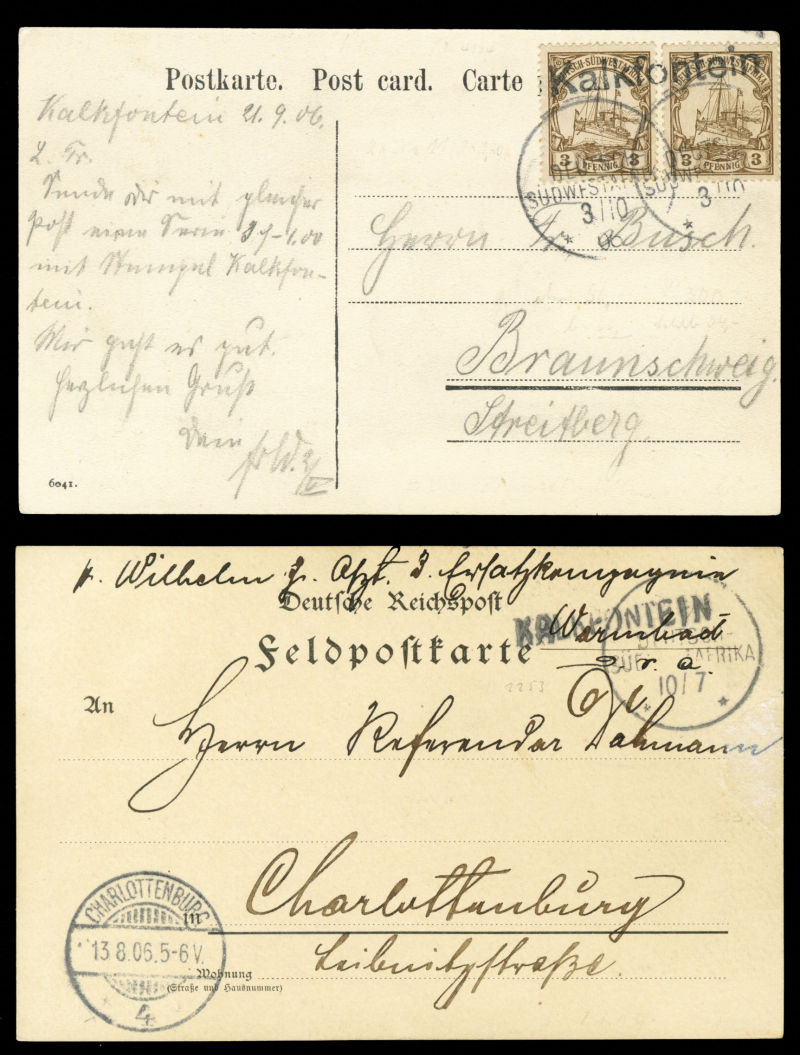 Postkarte. Post card. Carte
Kalkfontein
DEUTSCH-SÜDWESTAFRIKA
3 PFENNIG 3
3 PFENNIG 3
SÜDWESTAFRIKA
3/10
06
3/10
Kalkfontein 21.9.06.
L. Fr.
Sende dir mit gleicher
Post einen Serie 3 ₰-1.00
mit Stempel Kalkfon-
tein.
Mir geht es gut.
Herzlichen Gruß
Dein
Herrn Fr. Busch.
Braunschweig.
Streitberg.
6041.
Wilhelm 3. Ersatzkompagnie
Deutsche Reichspost
KALKFONTEIN
Warmbad
Feldpostkarte
SÜDWESTAFRIKA
10/7
An
Herrn Referendar Dahmann
in
Charlottenburg
Leibnitzstraße.
Wohnung
(Straße und Hausnummer)
CHARLOTTENBURG
13.8.06.5-6V.
4